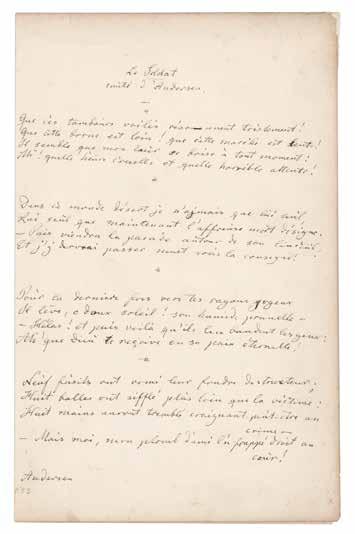 Le Soldat
imité d'Andersen.
Que ces tambours voilés résonnent tristement!
Que cette borne est loin! que cette marche est lente!
Il semble que mon cœur se brise à tout moment!
Ah! quelle heure cruelle et quelle horrible attente!
Dans ce monde désert je n'aimais que lui seul,
Lui seul que maintenant l'affreuse mort désigne.
- Puis viendra la parade autour de son linceul
Et j'y devrai passer muet sous la consigne!
Pour la dernière fois vers tes rayons joyeux
Il lève, ô doux soleil! son humide prunelle -
- Hélas! et puis voilà qu'ils lui bandent les yeux:
Ah que Dieu te reçoive en sa paix éternelle!
Neuf fusils ont vomi leur foudre destructeur;
Huit balles ont sifflé plus loin que la victime:
Huit mains auront tremblé craignant peut-être un
crime -
- Mais moi, mon plomb d'ami l'a frappé droit au
cœur!
Andersen